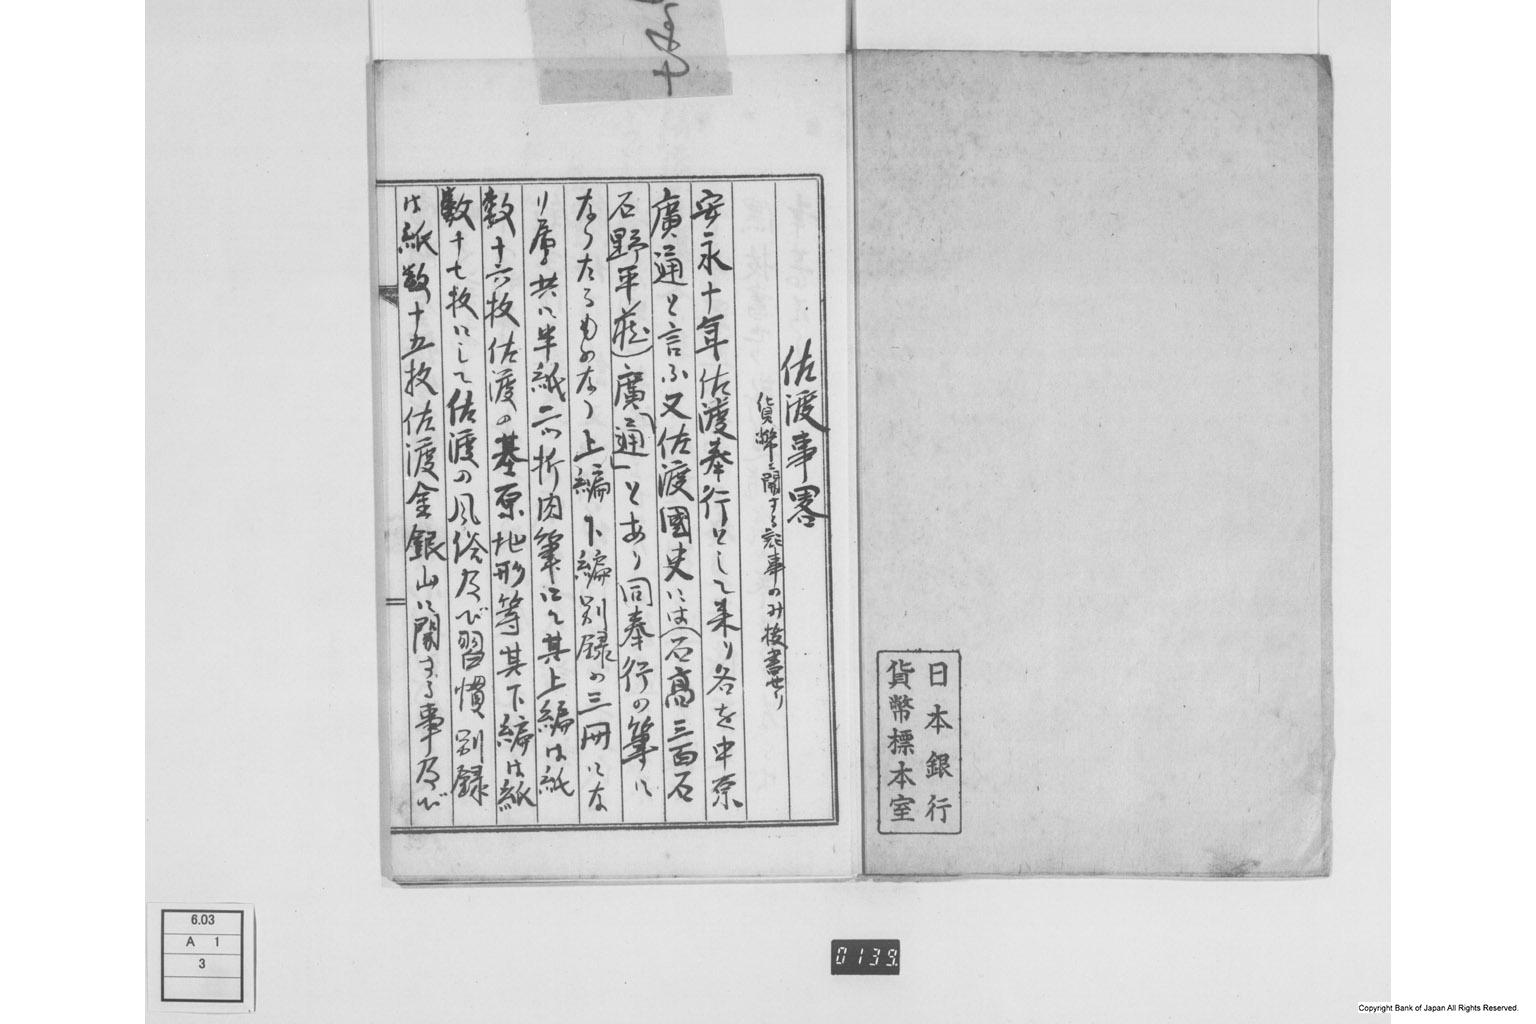 日本銀行
貨幣標本室
佐渡事畧
貨幣ニ関する記事のみ抜書せり
安永十年佐渡奉行として来り名を中原
廣通と言ふ又佐渡國史には(石高三百石
石野平蔵)廣「通」とあり同奉行の筆に
なりたるものなり上編下編別録の三冊にな
り居る共に半紙二つ折肉筆にて其上編は紙
数十六枚佐渡の基原地形等其下編は紙
数十七枚にして佐渡の風俗及び習慣別録
は紙数十五枚佐渡金銀山に関する事及び
6.03
A 1
3
0139
Copyright Bank of Japan All Rights Reserved.